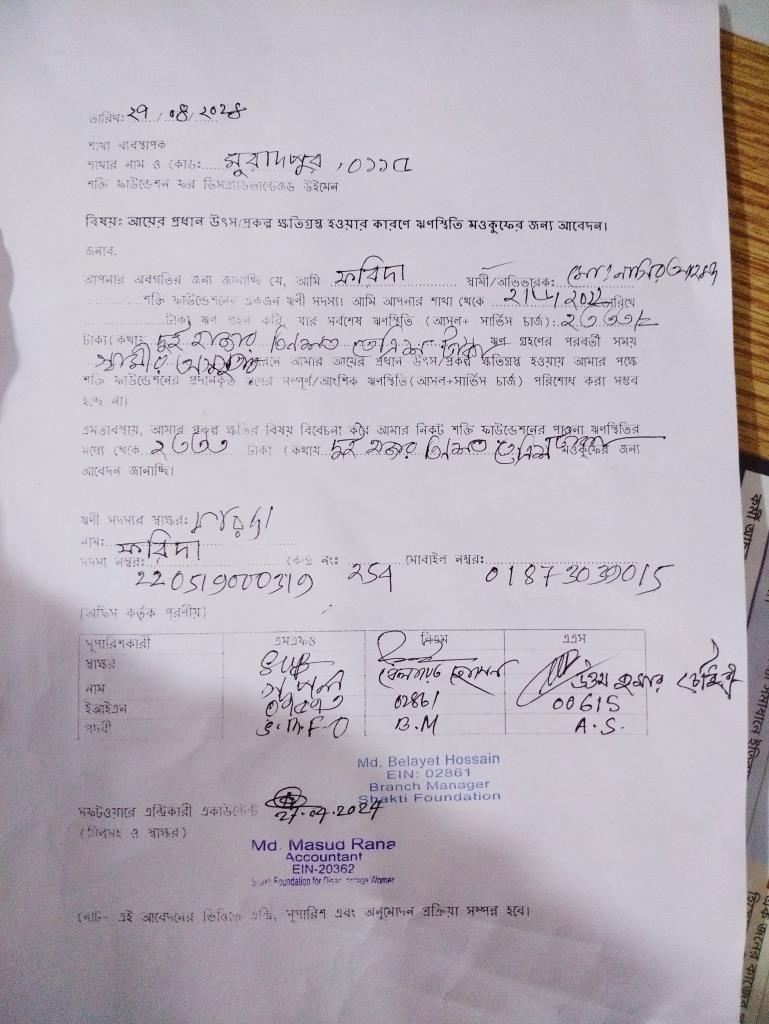 তারিখ: ২৭/০৪/২০২৪
শাখা ব্যবস্থাপক
শাখার নাম ও কোড: মুরাদপুর, ০১১৫
শক্তি ফাউন্ডেশন ফর ডিসএ্যাডভান্টেজড উইমেন
বিষয়: আয়ের প্রধান উৎস/প্রকল্প ক্ষতিগ্রস্থ হওয়ার কারণে ঋণস্থিতি মওকুফের জন্য আবেদন।
জনাব,
আপনার অবগতির জন্য জানাচ্ছি যে, আমি ফরিদা স্বামী/অভিভাবক: মোঃ
শক্তি ফাউন্ডেশনের একজন ঋণী সদস্য। আমি আপনার শাখা থেকে তারিখে
টাকা ঋণ গ্রহন করি, যার সর্বশেষ ঋণস্থিতি (আসল+ সার্ভিস চার্জ): ২৩৩৩/=
টাকা (কথায় দুই হাজার তিনশত তেত্রিশ টাকা ঋণ গ্রহণের পরবর্তী সময়
স্বামীর অসুস্থতার কারনে আমার আয়ের প্রধান উৎস/প্রকল্প ক্ষতিগ্রস্থ হওয়ায় আমার পক্ষে
শক্তি ফাউন্ডেশনের প্রদানকৃত ঋণের সম্পূর্ণ/আংশিক ঋণস্থিতি(আসল+সার্ভিস চার্জ) পরিশোধ করা সম্ভব
হচ্ছে না।
এমতাবস্থায়, আমার প্রকল্প ক্ষতির বিষয় বিবেচনা করে আমার নিকট শক্তি ফাউন্ডেশনের পাওনা ঋণস্থিতির
মধ্যে থেকে ২৩৩৩ টাকা (কথায় দুই হাজার তিনশত তেত্রিশ টাকা মওকুফের জন্য
আবেদন জানাচ্ছি।
ঋণী সদস্যর স্বাক্ষর: ফরিদা
নাম: ফরিদা
সদস্য নম্বর: 220519000319 কেন্দ্র নং: 254 মোবাইল নম্বর: 01873039015
[অফিস কর্তৃক পূরণীয়]
সুপারিশকারী এসএফও বিএম এএস
স্বাক্ষর
নাম বেলায়েত হোসেন উত্তম কুমার চৌধুরী
ইআইএন 02861 00615
পদবী S.M.F-O B.M A.S.
Md. Belayet Hossain
EIN: 02861
Branch Manager
Shakti Foundation
সফটওয়ারে এন্ট্রিকারী একাউন্টেন্ট 27.04.2024
(সিলসহ ও স্বাক্ষর)
Md. Masud Rana
Accountant
EIN-20362
Foundation for Women
নোট- এই আবেদনের ভিত্তিতে এন্ট্রি, সুপারিশ এবং অনুমোদন প্রক্রিয়া সম্পন্ন হবে।